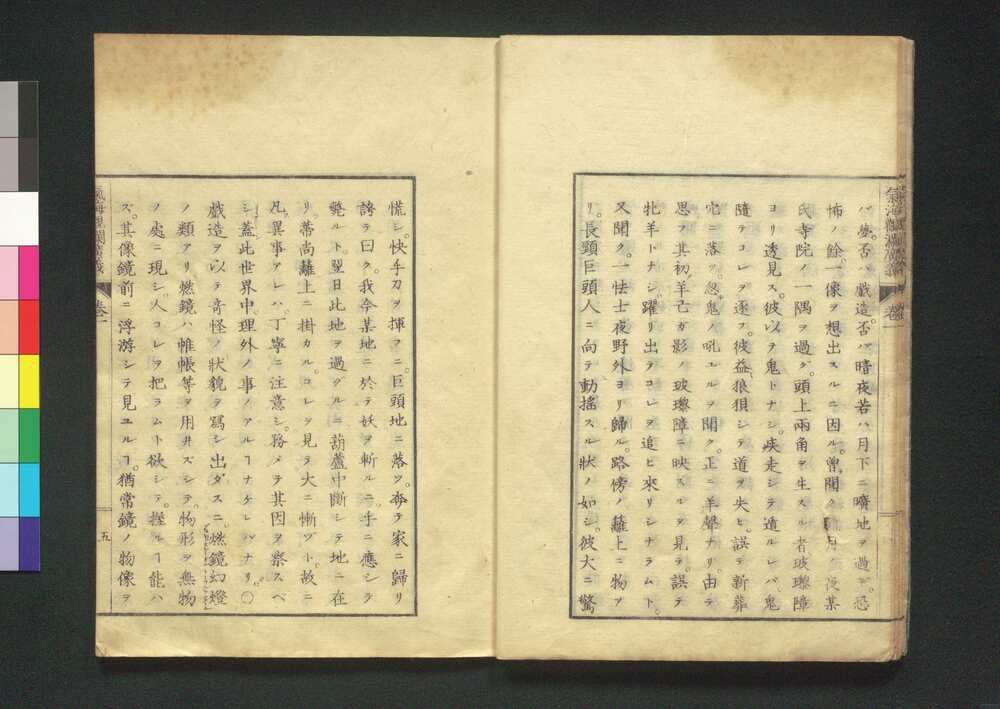 氣海觀瀾廣義
卷一
バ、夢否ハ戯造、否バ暗夜若ハ月下ニ曠地ヲ過ギ、恐
怖ノ餘、一像ヲ想出スルニ因ル。曽聞ク、月夜某
氏寺院ノ一隅ヲ過グ。頭上兩角ヲ生スル者玻瓈障
ヨリ透見ス。彼以テ鬼トナシ、疾走シテ遁ルレバ、鬼
隨テコレヲ逐フ。彼益狼狽シテ道ヲ失ヒ、誤テ新葬
穴ニ落ツ。忽鬼ノ吼エルヲ聞ク。正ニ羊聲ナリ。由テ
思フ其初羊己ガ影ノ玻瓈障ニ映スルヲ見テ、誤テ
牝羊トナシ、躍リ出テコレヲ追ヒ來リシナラムト。
又聞ク。一怯士夜野外ヨリ歸ル。路傍ノ籬上ニ物ア
リ。長頸巨頭人ニ向テ動搖スル狀ノ如シ。彼大ニ驚
慌シ、快手刀ヲ揮フニ、巨頭地ニ落ツ。奔テ家ニ歸リ
誇テ曰ク、我今某地ニ於テ妖ヲ斬ルニ、手ニ應シテ
斃ルト。翌日此地ヲ過グルニ葫蘆中斷シテ地ニ在
リ。蒂尚籬上ニ掛カル。コレヲ見テ大ニ慚ヅト。故ニ
凡異事アレハ、丁寧ニ注意シ、務メテ其因ヲ察スベ
シ、蓋此世界中、理外ノ事ノアルヿナケレバナリ。〇
戯造ヲ以テ奇怪ノ狀貌ヲ寫シ出ダスニ、燃鏡幻燈
ノ類アリ。燃鏡ハ帷帳等ヲ用井ズシテ、物形ヲ無物
ノ處ニ現シ、人コレヲ把ラムト欲シテ、握ルヿ能ハ
ズ。其像鏡前ニ浮游シテ見ユルヿ、猶常鏡ノ物像ヲ
氣海觀瀾廣義
卷一
五